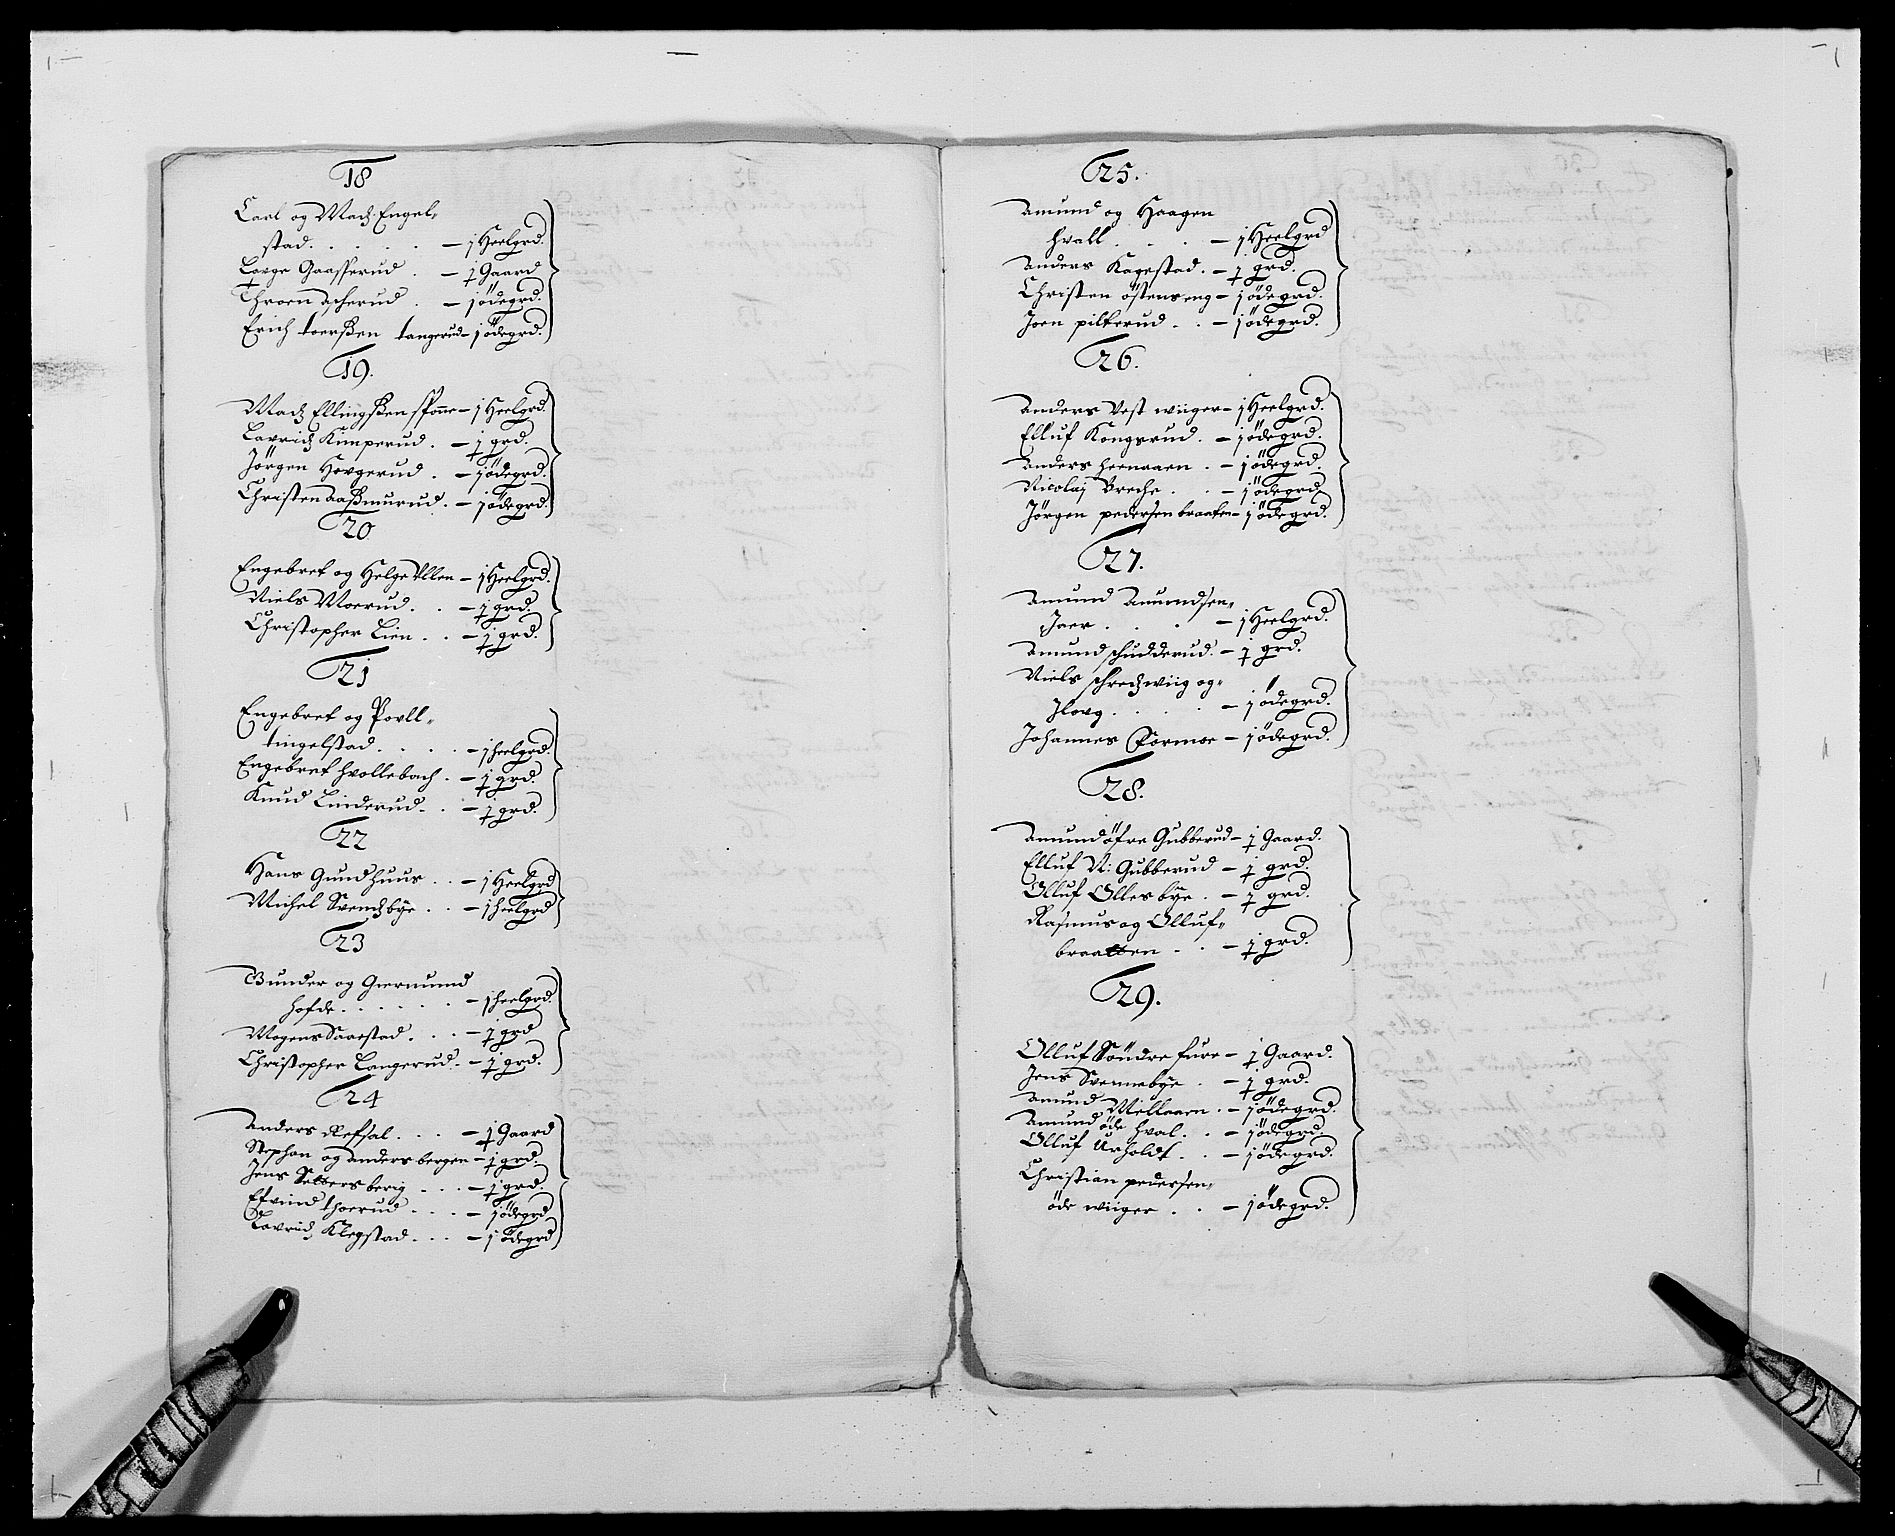 18
Carl og Madz Engel-
stad . . . . . — 1 Heelgrd.
Lavge Gaasserud . — ½ Gaard
Throen Ascherud . — 1 ödegrd.
Erich toerßen tangerud — 1 ödegrd.
19.
Madz Ellingßen sponne — 1 Heelgrd.
Lavridz Kimperud . — ½ grd.
Jörgen Hovgerud . — 1 ödegrd.
Christen Aaßmurud . — 1 ödegrd.
20
Engebret og Helge Ullen — 1 Heelgrd.
Niels Moerud . . — ½ grd.
Christopher Lien . . — ½ grd.
21
Engebret og Povll
tingelstad . . . . — 1 heelgrd.
Engebret hvollebach . — ½ grd.
Knud Linderud . . — ½ grd.
22
Hans Gundhuus . . — 1 Heelgrd
Michel Svendzbye . . — 1 heelgrd
23
Gunder og Giermund
hofde . . . . . — 1 heelgrd.
Mogens Saaestad . . . — ½ grd
Christopher Langerud . — ½ grd.
24
Anders Refsal . . . — ½ Gaard
Stephan og Anders bergen — ½ grd.
Jens Setters berig . . . — ½ grd.
Efvind thoerud . . . — 1 ödegrd
Lavridz Klegstad . . . — 1 ödegrd
25.
Amund og Haagen
hvall . . . — 1 Heelgrd
Anders Kagestad . — ½ grd.
Christen östenseng — 1 ödegrd.
Joen pilterud . . — 1 ödegrd.
26.
Anders Vest wiiger — 1 Heelgrd.
Elluf Kongsrud . — 1 ödegrd.
Anders heenaaen . — 1 ödegrd.
Nicolaj Breche . . — 1 ödegrd.
Jörgen pedersen braaten — 1 ödegrd.
27.
Amund Amundsen
Jaer . . . . — 1 Heelgrd.
Amund schudderud . — ½ grd.
Niels schredzwiig og
Ilovg . . . . — 1 ödegrd.
Johannes Formoe — 1 ödegrd.
28.
Amund öfre Gubberud — ½ Gaard.
Elluf N: Gubberud — ½ grd.
Olluf Olles bye . — ½ grd.
Rasmus og Olluf
braatten . . — ½ grd.
29.
Olluf Söndre fure — ½ Gaard.
Jens Svennebye . — ½ grd.
Amund Mellaaen . — 1 ödegrd.
Amund öde hval . . — 1 ödegrd.
Olluf Urholdt . . — 1 ödegrd.
Christian pedersen
öde wiiger . . — 1 ödegrd.